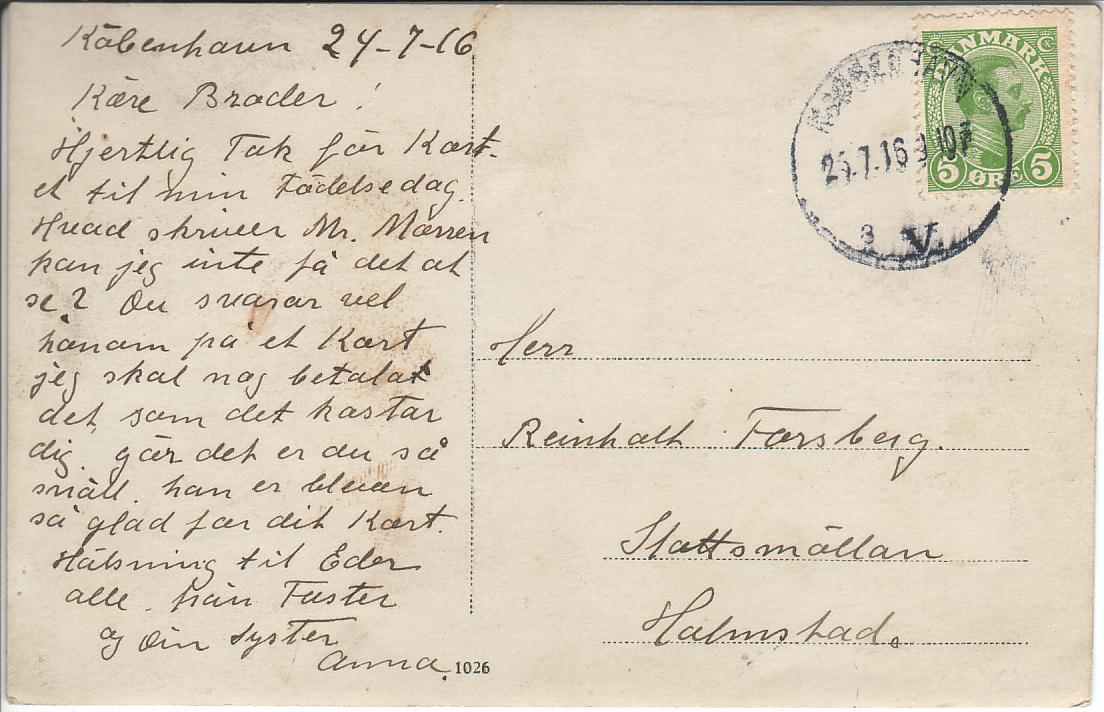 Köbenhavn 24-7-16
Kære Broder!
Hjertlig Tak för Kort-
et til min Födelsedag.
Hvad skriver Mr. Morren
kan jeg inte få det at
se? Du svarar vel
hånom på et Kort
jeg skal nog betala
det, som det kostar
dig. gör det er du så
snäll. han er bleven
så glad for dit Kort.
Hälsning til Eder
alle. från Faster
og Din Syster
Anna.
1026
DANMARK
5 ØRE 5
KJØBENHAVN
25.7.16
V.
Herr
Reinholt Forsberg.
Slottsmöllan
Halmstad.